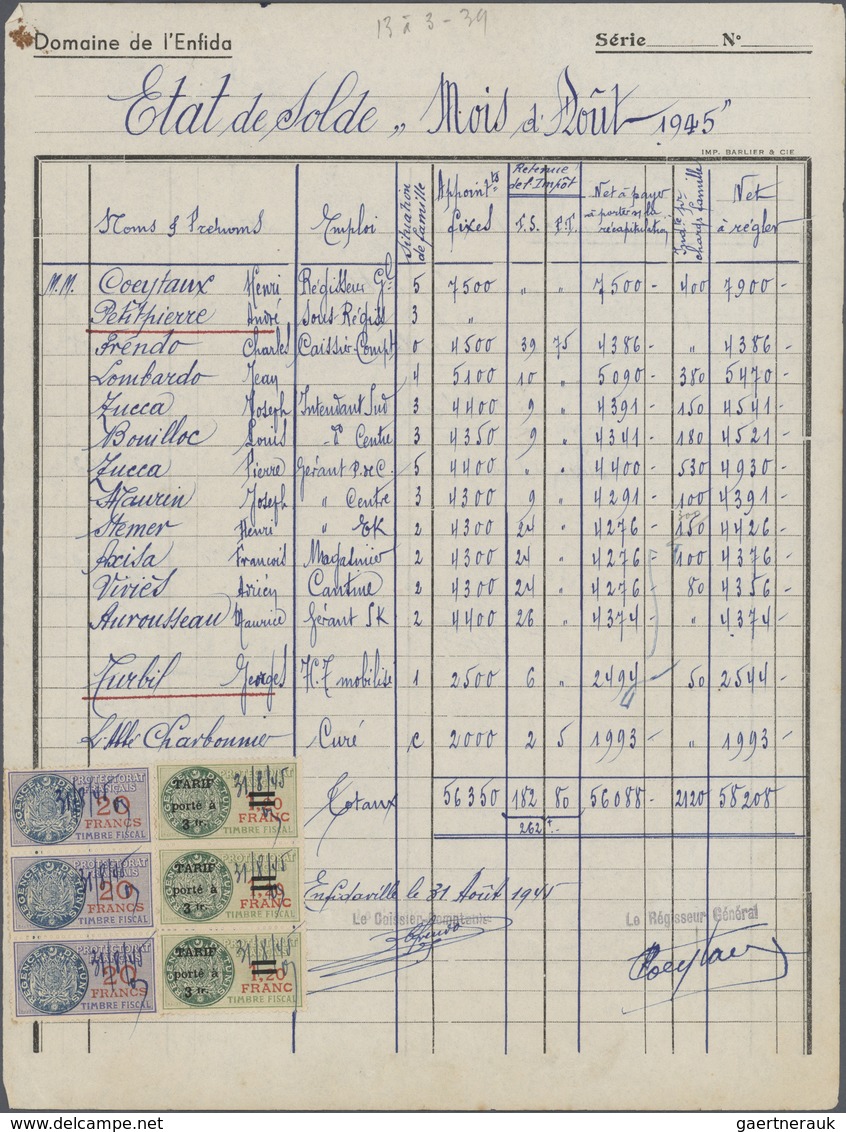 13 à 3-39
Domaine de l'Enfida Série N°
Etat de Solde „ Mois d'Août 1945"
IMP. BARLIER & CIE
Noms & Prénoms Emploi Situation de famille Appoint.ts fixes Retenue de l'Impôt T.S. P.T. Net à payer à porter récapitulation Ind.té pr charge famille Net à régler
M.M. Coeytaux Henri Régisseur Gl 5 7500 " " 7500 - 400 7900 -
Petitpierre André Sous-Régiss 3 "
Frendo Charles Caissier-Compt 0 4500 39 75 4386 - " 4386 -
Lombardo Jean 4 5100 10 " 5090 - 380 5470 -
Zucca Joseph Intendant Sud 3 4400 9 " 4391 - 150 4541 -
Bouilloc Louis -d° Centre 3 4350 9 " 4341 - 180 4521 -
Zucca Pierre Gérant P.de C. 5 4400 " " 4400 - 530 4930 -
Maurin Joseph " Centre 3 4300 9 " 4291 - 100 4391 -
300
Stemer Henri " EK 2 4300 24 " 4276 - 150 4426 -
Axisa François Magasinier 2 4300 24 " 4276 - 100 4376 -
Viviès Adrien Cantine 2 4300 24 " 4276 - 80 4356 -
Aurousseau Maurice Gérant SK 2 4400 26 " 4374 - " 4374 -
Turbil Georges H.T mobilisé 1 2500 6 " 2494 - 50 2544 -
L'Abbé Charbonnier Curé c 2000 2 5 1993 - " 1993 -
Totaux 56350 182 80 56088 - 2120 58208
262 f.-
Enfidaville le 31 Août 1945
Le Caissier-Comptable Le Régisseur Général
Frendo Coeytaux
PROTECTORAT FRANÇAIS
REGENCE DE TUNIS
20 FRANCS
TIMBRE FISCAL
31/8/45
TARIF porté à 3 fr.
1.20 FRANC
TIMBRE FISCAL
31/8/45
PROTECTORAT FRANÇAIS
REGENCE DE TUNIS
20 FRANCS
TIMBRE FISCAL
31/8/45
TARIF porté à 3 fr.
1.20 FRANC
TIMBRE FISCAL
31/8/45
PROTECTORAT FRANÇAIS
REGENCE DE TUNIS
20 FRANCS
TIMBRE FISCAL
31/8/45
TARIF porté à 3 fr.
1.20 FRANC
TIMBRE FISCAL
31/8/45
delcampe.net gaertnerauk